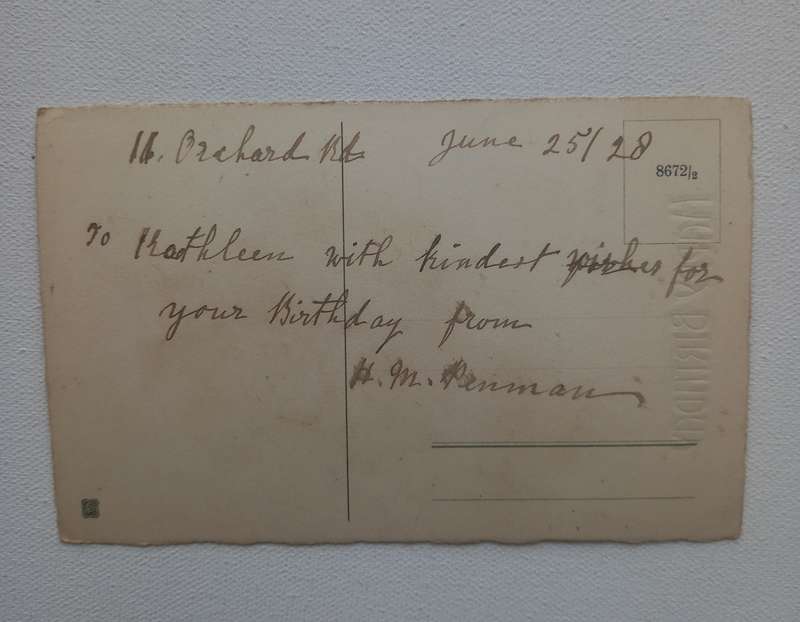 16. Orchard Rd June 25/28
8672/2
To Kathleen with kindest wishes for
your Birthday from
H. M. Penman